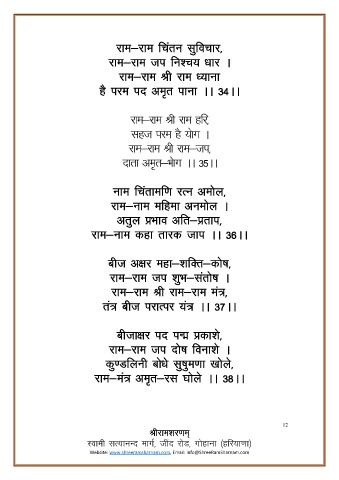 राम–राम चिंतन सुविचार,
राम–राम जप निश्चय धार ।
राम–राम श्री राम ध्याना
है परम पद अमृत पाना ।। 34।।
राम–राम श्री राम हरि,
सहज परम है योग ।
राम–राम श्री राम–जप,
दाता अमृत–भोग ।। 35।।
नाम चिंतामणि रत्न अमोल,
राम–नाम महिमा अनमोल ।
अतुल प्रभाव अति–प्रताप,
राम–नाम कहा तारक जाप ।। 36।।
बीज अक्षर महा–शक्ति–कोष,
राम–राम जप शुभ–संतोष ।
राम–राम श्री राम–राम मंत्र,
तंत्र बीज परात्पर यंत्र ।। 37।।
बीजाक्षर पद पद्म प्रकाशे,
राम–राम जप दोष विनाशे ।
कुण्डलिनी बोधे सुषुमणा खोले,
राम–मंत्र अमृत–रस घोले ।। 38।।
12
श्रीरामशरणम्
स्वामी सत्यानन्द मार्ग, जींद रोड, गोहाना (हरियाणा)
Website: www.shreeramsharnam.com, Email: info@ShreeRamSharnam.com